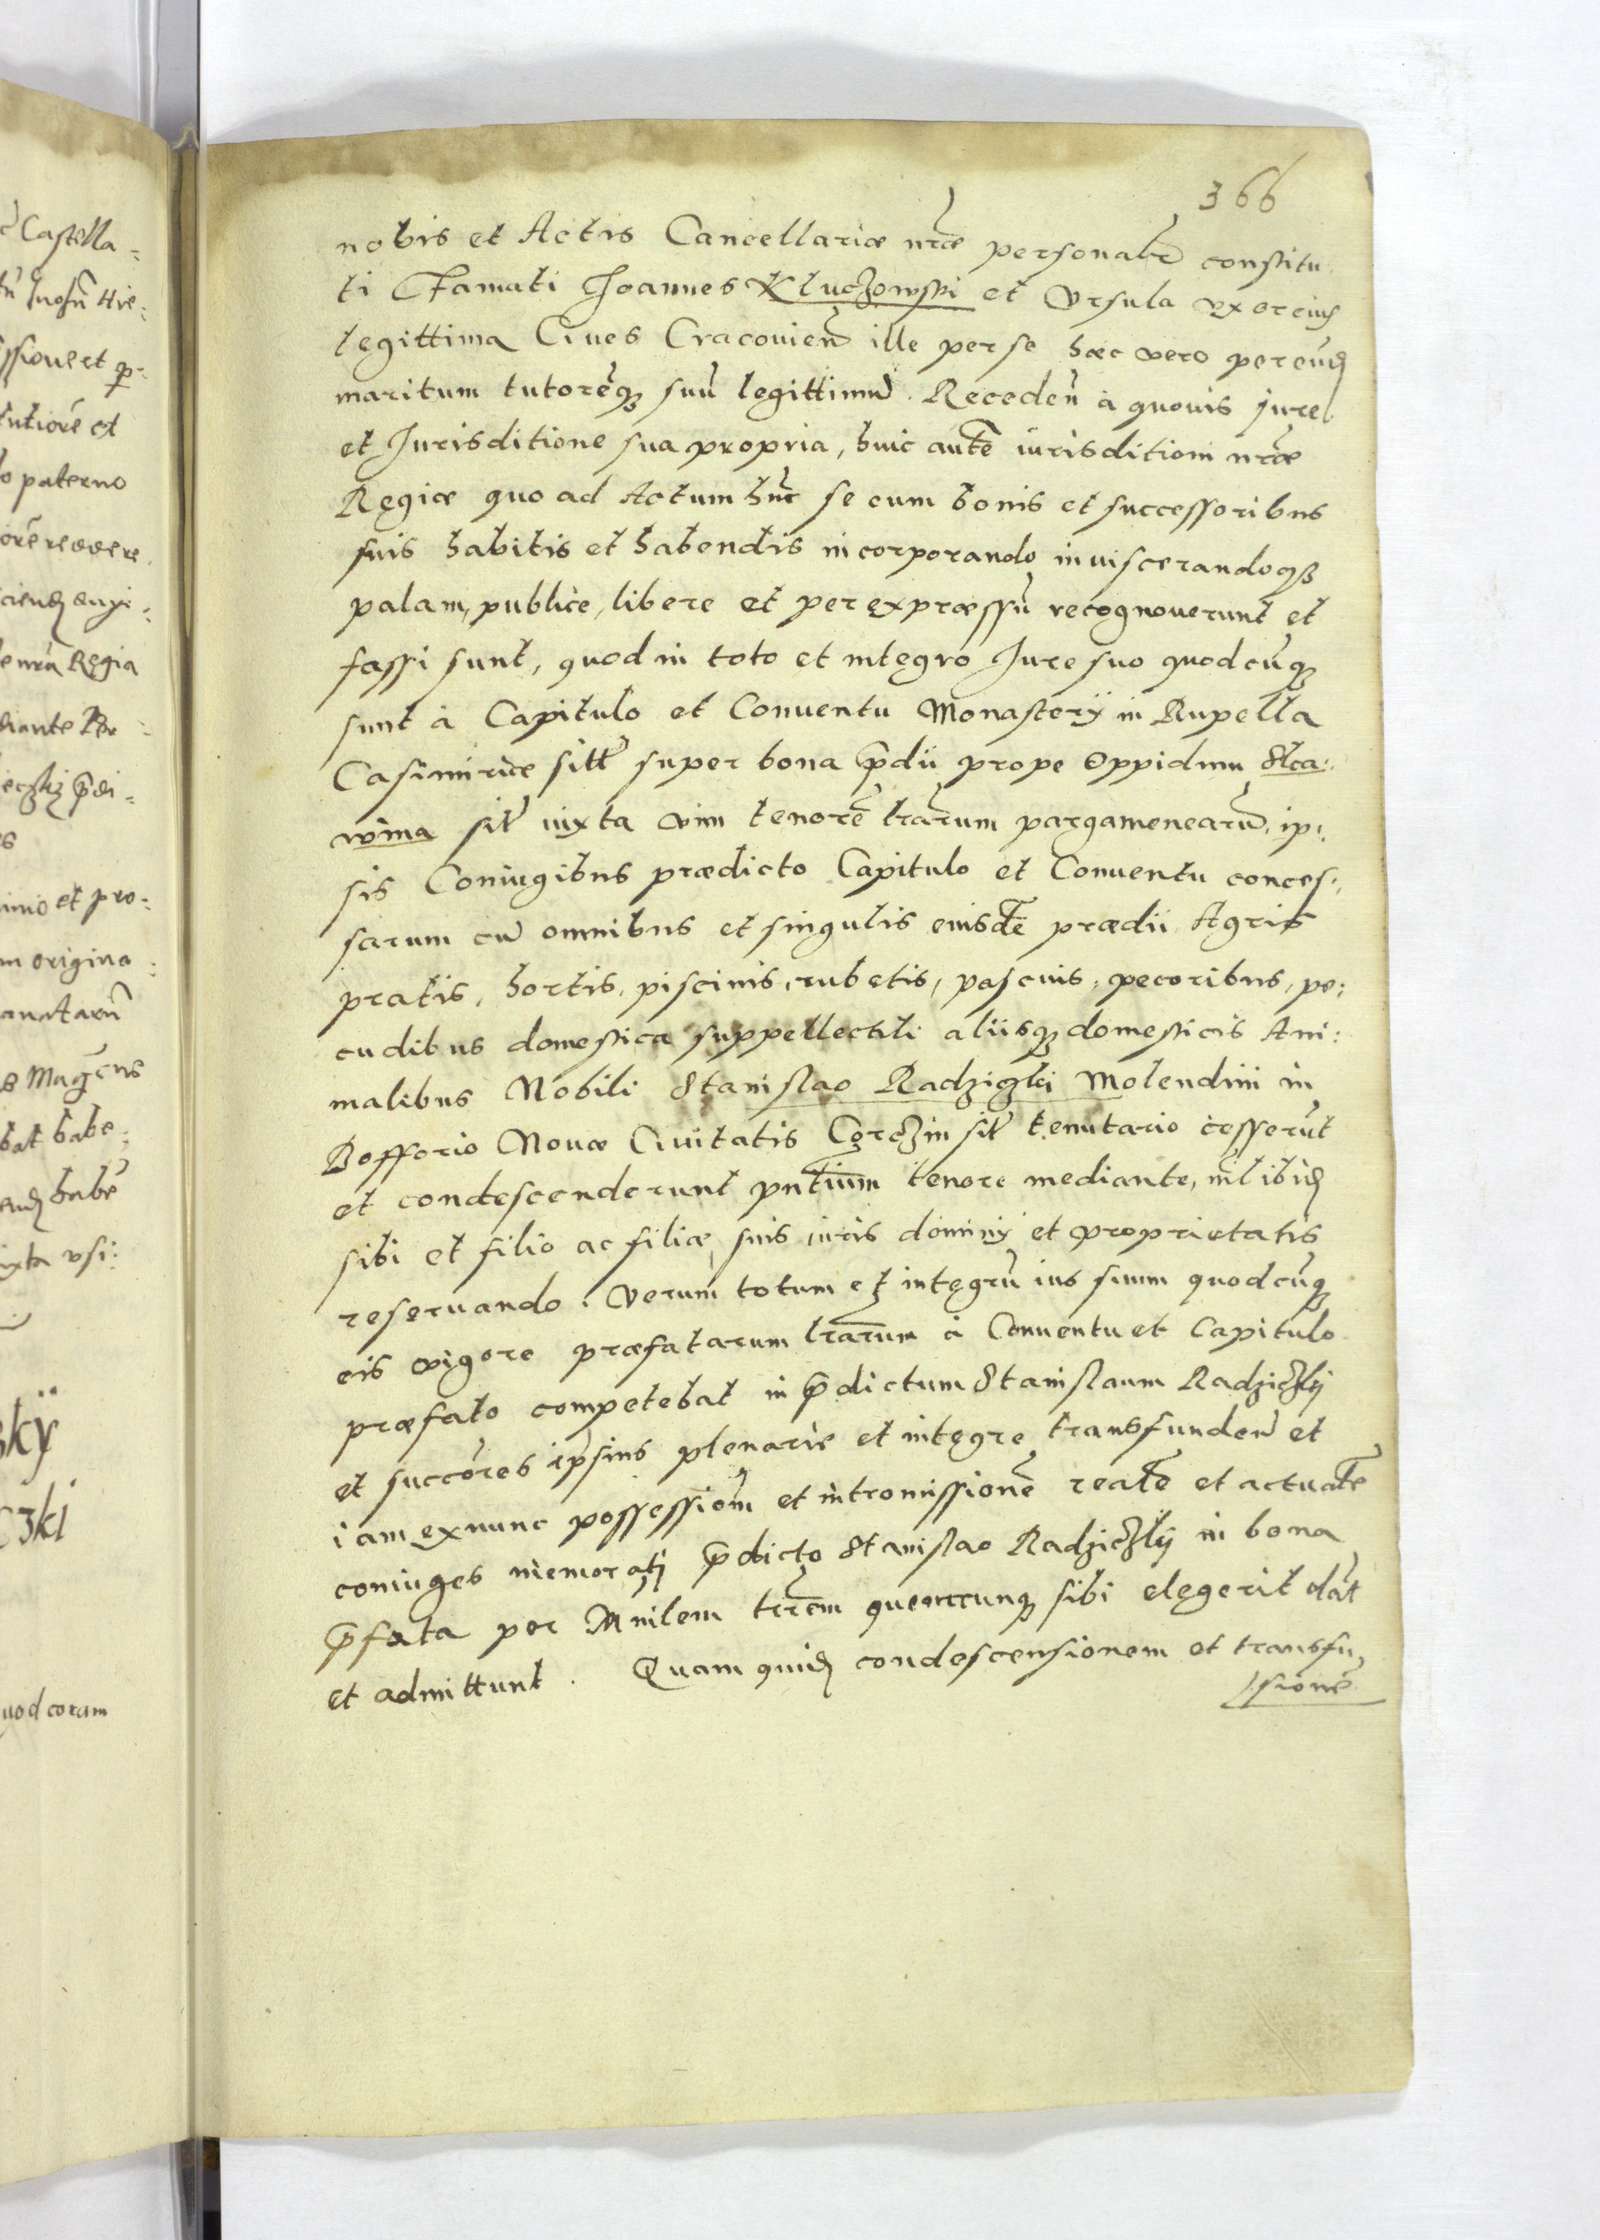 366
nobis et Actis Cancellariæ nrae personalr constitu
ti Famati Joannes Kluczowski et Vrsula vxor eius
legittima Ciues Cracouien ille per se hæc vero per eund
maritum tutoreq suu legittimu. Receden à quouis jure
et Jurisditione sua propria, huic aute iurisditioni nræ
Regiæ quo ad Actum hnc se cum bonis et successoribus
suis habitis et habendis incorporando inuiscerandoq
palam, publice, libere et per expræssu recognouerunt et
fassi sunt, quod in toto et integro Jure suo quodcuq
sunt à Capitulo et Conuentu Monasterÿ in Rupella
Casimiriæ sitt super bona pdii prope Oppidum Ska:
wina sit iuxta vim tenore lrarum pargamenearu, ip:
sis Coniugibus prædicto Capitulo et Conuentu conces:
sarum cu omnibus et singulis eiusde prædii Agris
pratis, hortis, piscinis, rubetis, pascuis, pecoribus, pe:
cudibus domestica suppellectili aliisq domesticis Ani:
malibus Nobili Stanislao Radziczki Molendini in
Bofforio Nouæ Ciuitatis Corczin sit tenutario cesserut
et condescenderunt pntium tenore mediante, nil ibid
sibi et filio ac filiæ suis iuris dominÿ et proprietatis
reseruando. Verum totum et integru ius suum quodcuq
eis vigore præfatarum lrarum à Conuentu et Capitulo
præfato competebat in pdictum Stanislaum Radziczkÿ
et succores ipsius plenarie et integre transfunden et
iam exnunc possessiom et intromissione reale et actuale
coniuges memorati pdicto Stanislao Radziczkÿ in bona
pfata per Mnilem trrem quemcunq sibi elegerit dat
et admittunt. Quam quid condescensionem et transfu
sione